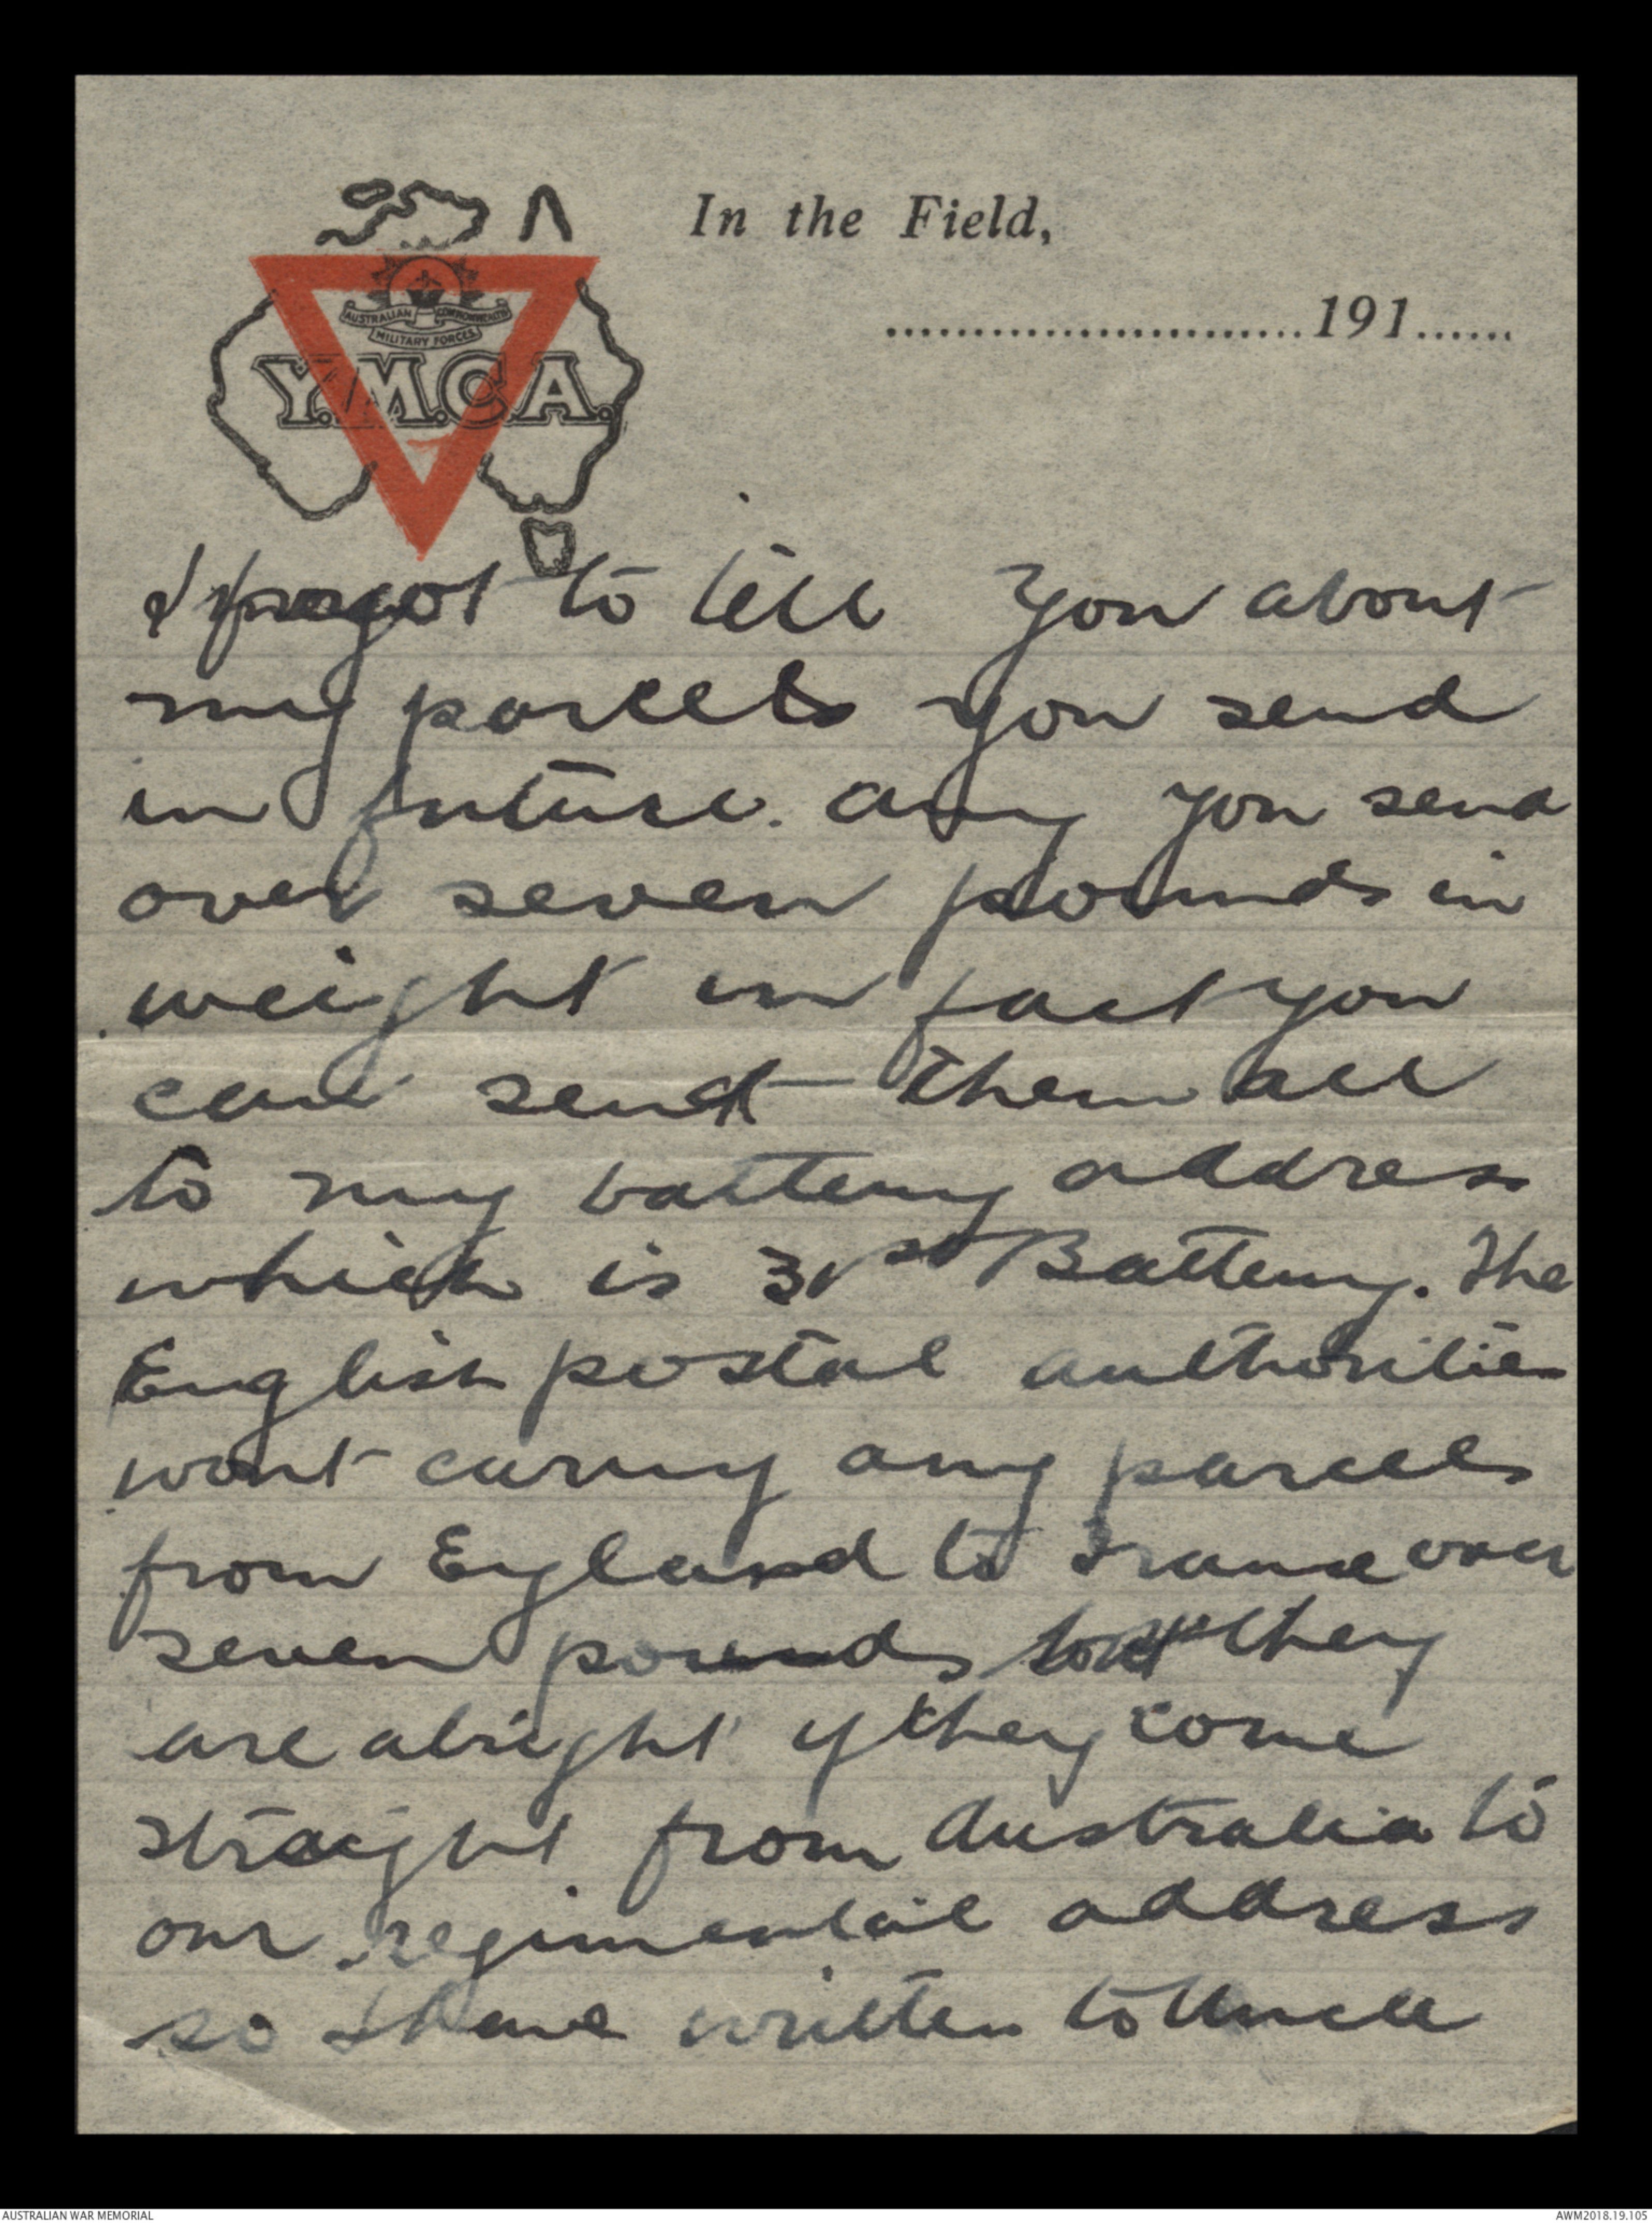 In the Field,
........................191......
AUSTRALIAN COMMONWEALTH
MILITARY FORCES
Y.M.C.A.
I forgot to tell you about
my parcels you send
in future. any you send
over seven pounds in
weight in fact you
can send them all
to my battery address
which is 31st Battery. The
English postal authorities
wont carry any parcels
from England to France over
seven pounds but they
are alright if they come
straight from Australia to
our regimental address
so I have written to Uncle
AUSTRALIAN WAR MEMORIAL
AWM2018.19.105